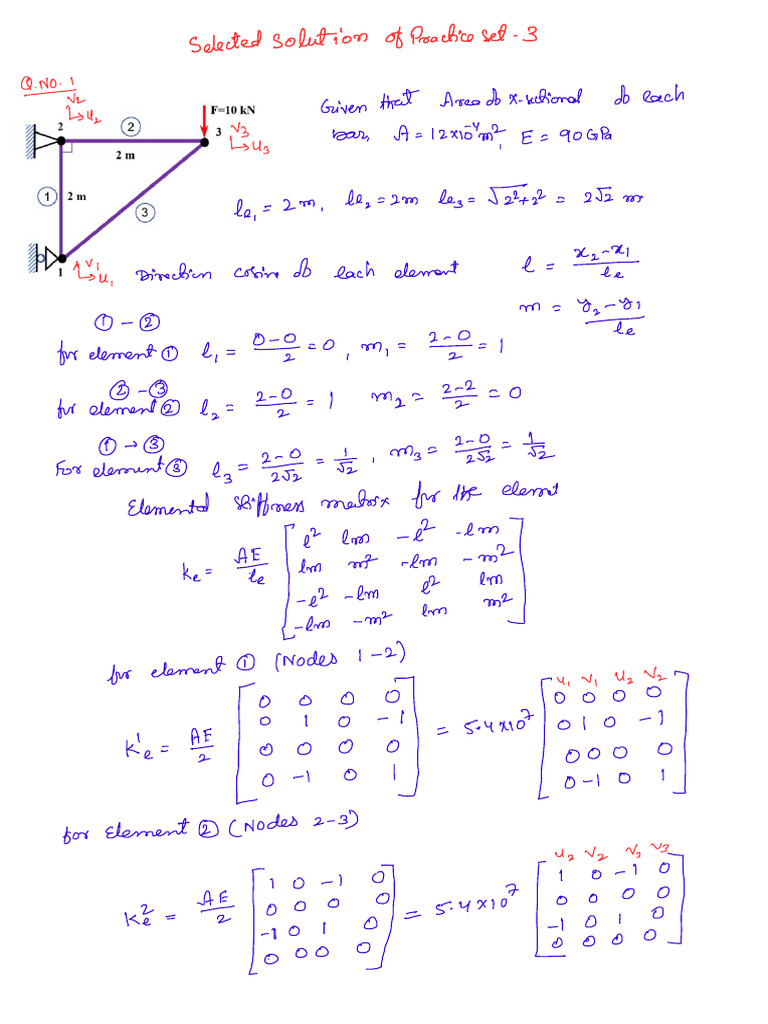 Selected Solution of Practice set - 3
Q.NO. 1
V2
→ u2
F=10 kN
2
②
3
V3
→ u3
2 m
①
2 m
③
1
V1
→ u1
Given that Area of x-sectional of each
bar, A = 12×10⁻⁴ m², E = 90 GPa
le₁ = 2m, le₂ = 2m le₃ = √2²+2² = 2√2 m
Direction cosine of each element l = x₂-x₁/le
m = y₂-y₁/le
① - ②
for element ① l₁ = 0-0/2 = 0, m₁ = 2-0/2 = 1
② - ③
for element ② l₂ = 2-0/2 = 1 m₂ = 2-2/2 = 0
① → ③
For element ③ l₃ = 2-0/2√2 = 1/√2, m₃ = 2-0/2√2 = 1/√2
Elemental stiffness matrix for the elemnt
ke = AE/le
l² lm -l² -lm
lm m² -lm -m²
-l² -lm l² lm
-lm -m² lm m²
for element ① (Nodes 1-2)
u₁ v₁ u₂ v₂
K¹e = AE/2 [0 0 0 0 = 5.4×10⁷ [0 0 0 0
0 1 0 -1 0 1 0 -1
0 0 0 0 0 0 0 0
0 -1 0 1] 0 -1 0 1]
for Element ② (Nodes 2-3)
u₂ v₂ v₃ v₃
K²e = AE/2 [1 0 -1 0 = 5.4×10⁷ [1 0 -1 0
0 0 0 0 0 0 0 0
-1 0 1 0 -1 0 1 0
0 0 0 0] 0 0 0 0]